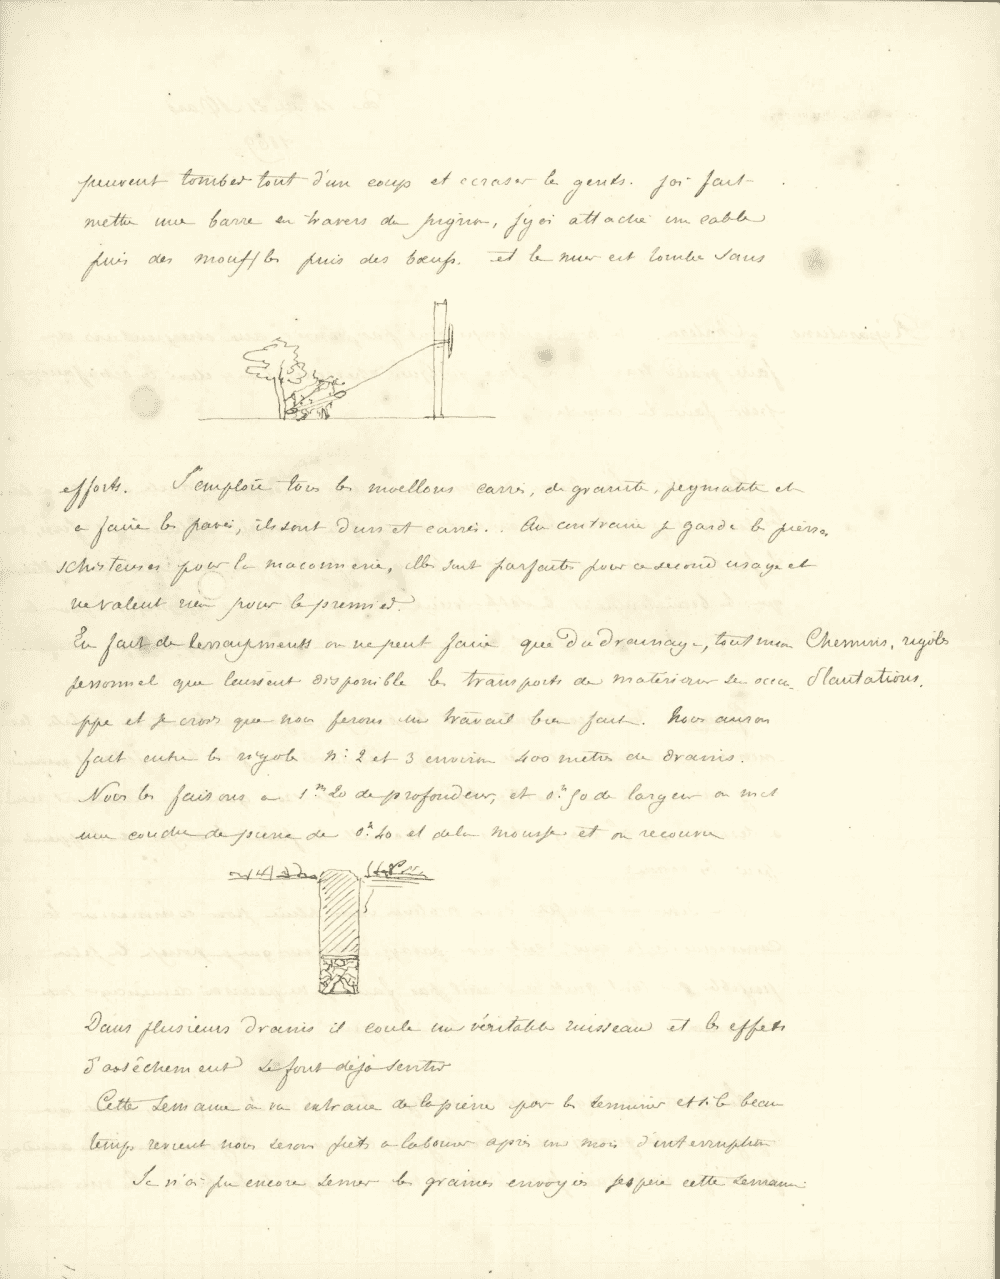 peuvent tomber tout d'un coup et ecraser les gents. J'ai fait
mettre une barre en travers du pignon, j'y ai attaché un cable
puis des moufles puis des bœufs. et le mur est tombé sans
efforts. J'emploie tous les moellons carrés, de granite, pegmatite et
a faire les pavés, ils sont durs et carrés. Au contraire je garde les pierres
schisteuses pour la maconnerie, elles sont parfaites pour ce second usage et
ne valent rien pour le premier.
En fait de terrassements on ne peut faire que du drainage, tout mon
Chemins, rigoles
personnel que laissent disponible les transports de materiaux s'en occu
Plantations.
ppe et je crois que nous ferons un travail bien fait. Nous avons
fait entre les rigoles N° 2 et 3 environ 400 metres de drains.
Nous les faisons a 1m 20 de profondeur, et 0m 50 de largeur on met
une couche de pierre de 0m 40 et de la mousse et on recouvre
Dans plusieurs drains il coule un véritable ruisseau et les effets
d'assêchement se font déjà sentir
Cette semaine on va extraire de la pierre par les et si le beau
temps revient nous serons prets a labourer après un mois d'interruption
Je n'ai pu encore semer les graines envoyées j'espère cette semaine